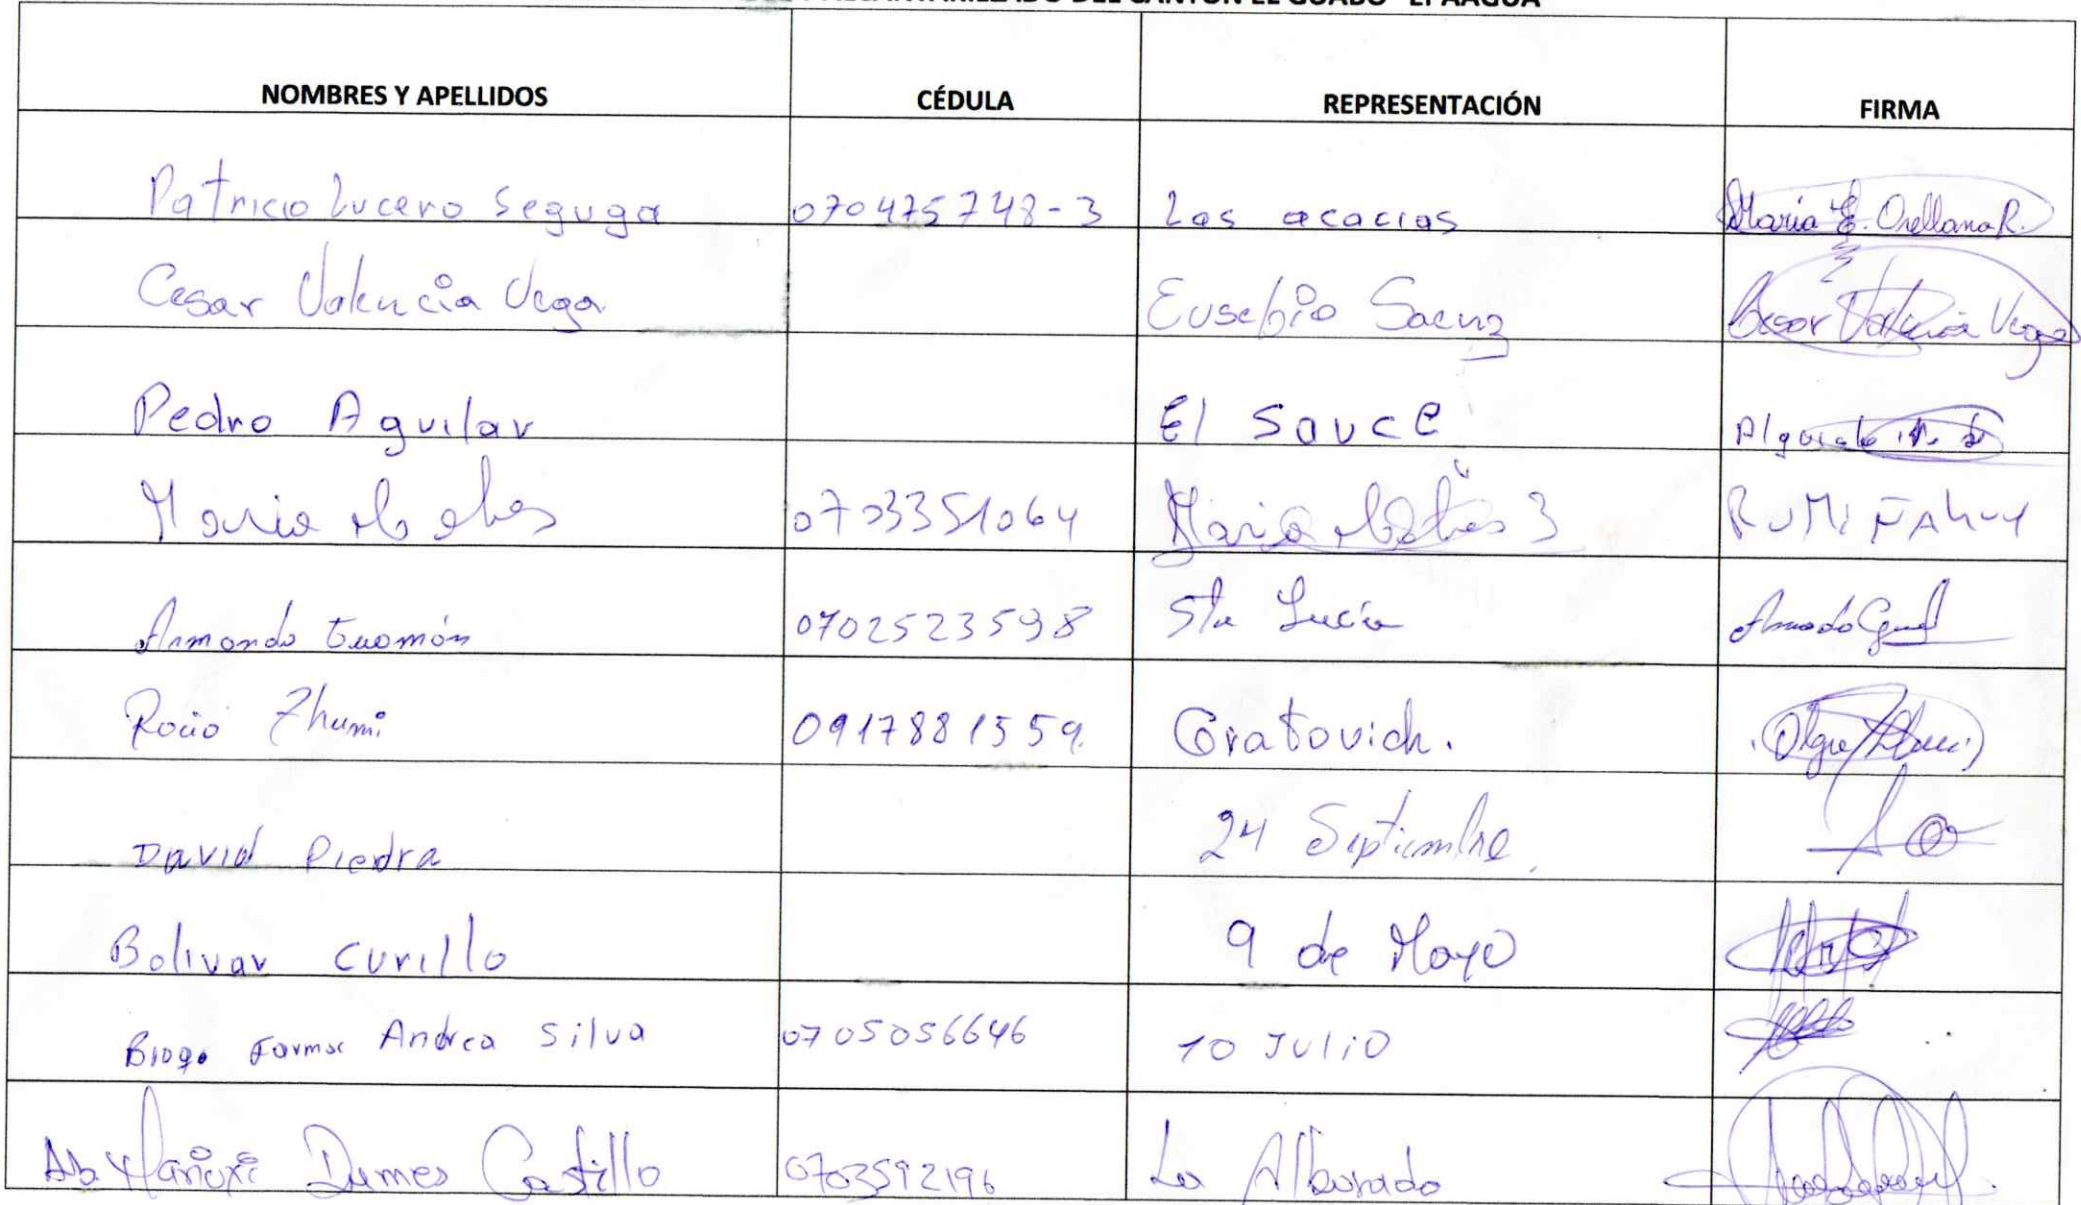 DEL CANTÓN EL GUABO "EPAAGUA"
NOMBRES Y APELLIDOS CÉDULA REPRESENTACIÓN FIRMA
Patricio Lucero Seguga 070475748-3 Las acacias Maria E. Orellana R.
Cesar Valencia Vega Eusebio Saenz Cesar Valencia Vega
Pedro Aguilar El Sauce
Maria 0703351064 Maria 3 RUMIÑAHUY
Armando Guamán 0702523598 Sta Lucía Armando
Rocio Zhumi 0917881559. Gratovich. Olga Zhumi
David Piedra 24 Septiembre
Bolivar Curillo 9 de Mayo
Andrea Silva 0705056646 10 Julio
Ab Dumes Castillo 0703592196 La Alborada